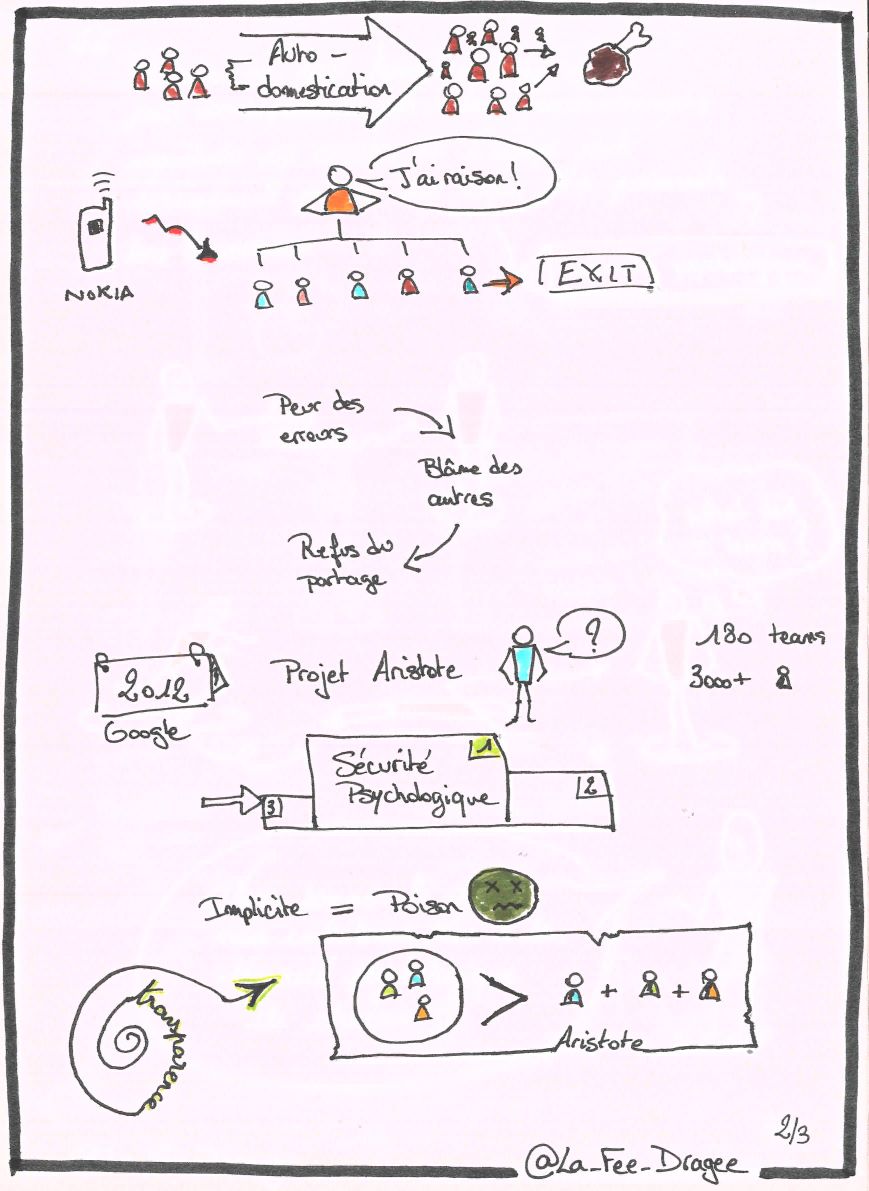 Auto-
domestication
J'ai raison!
NOKIA
EXIT
Peur des
erreurs
Blâme des
autres
Refus du
partage
2012
Google
Projet Aristote
?
180 teams
3000+
1
Sécurité
Psychologique
2
3
Implicite = Poison
transparence
> + +
Aristote
2/3
@La_Fee_Dragee